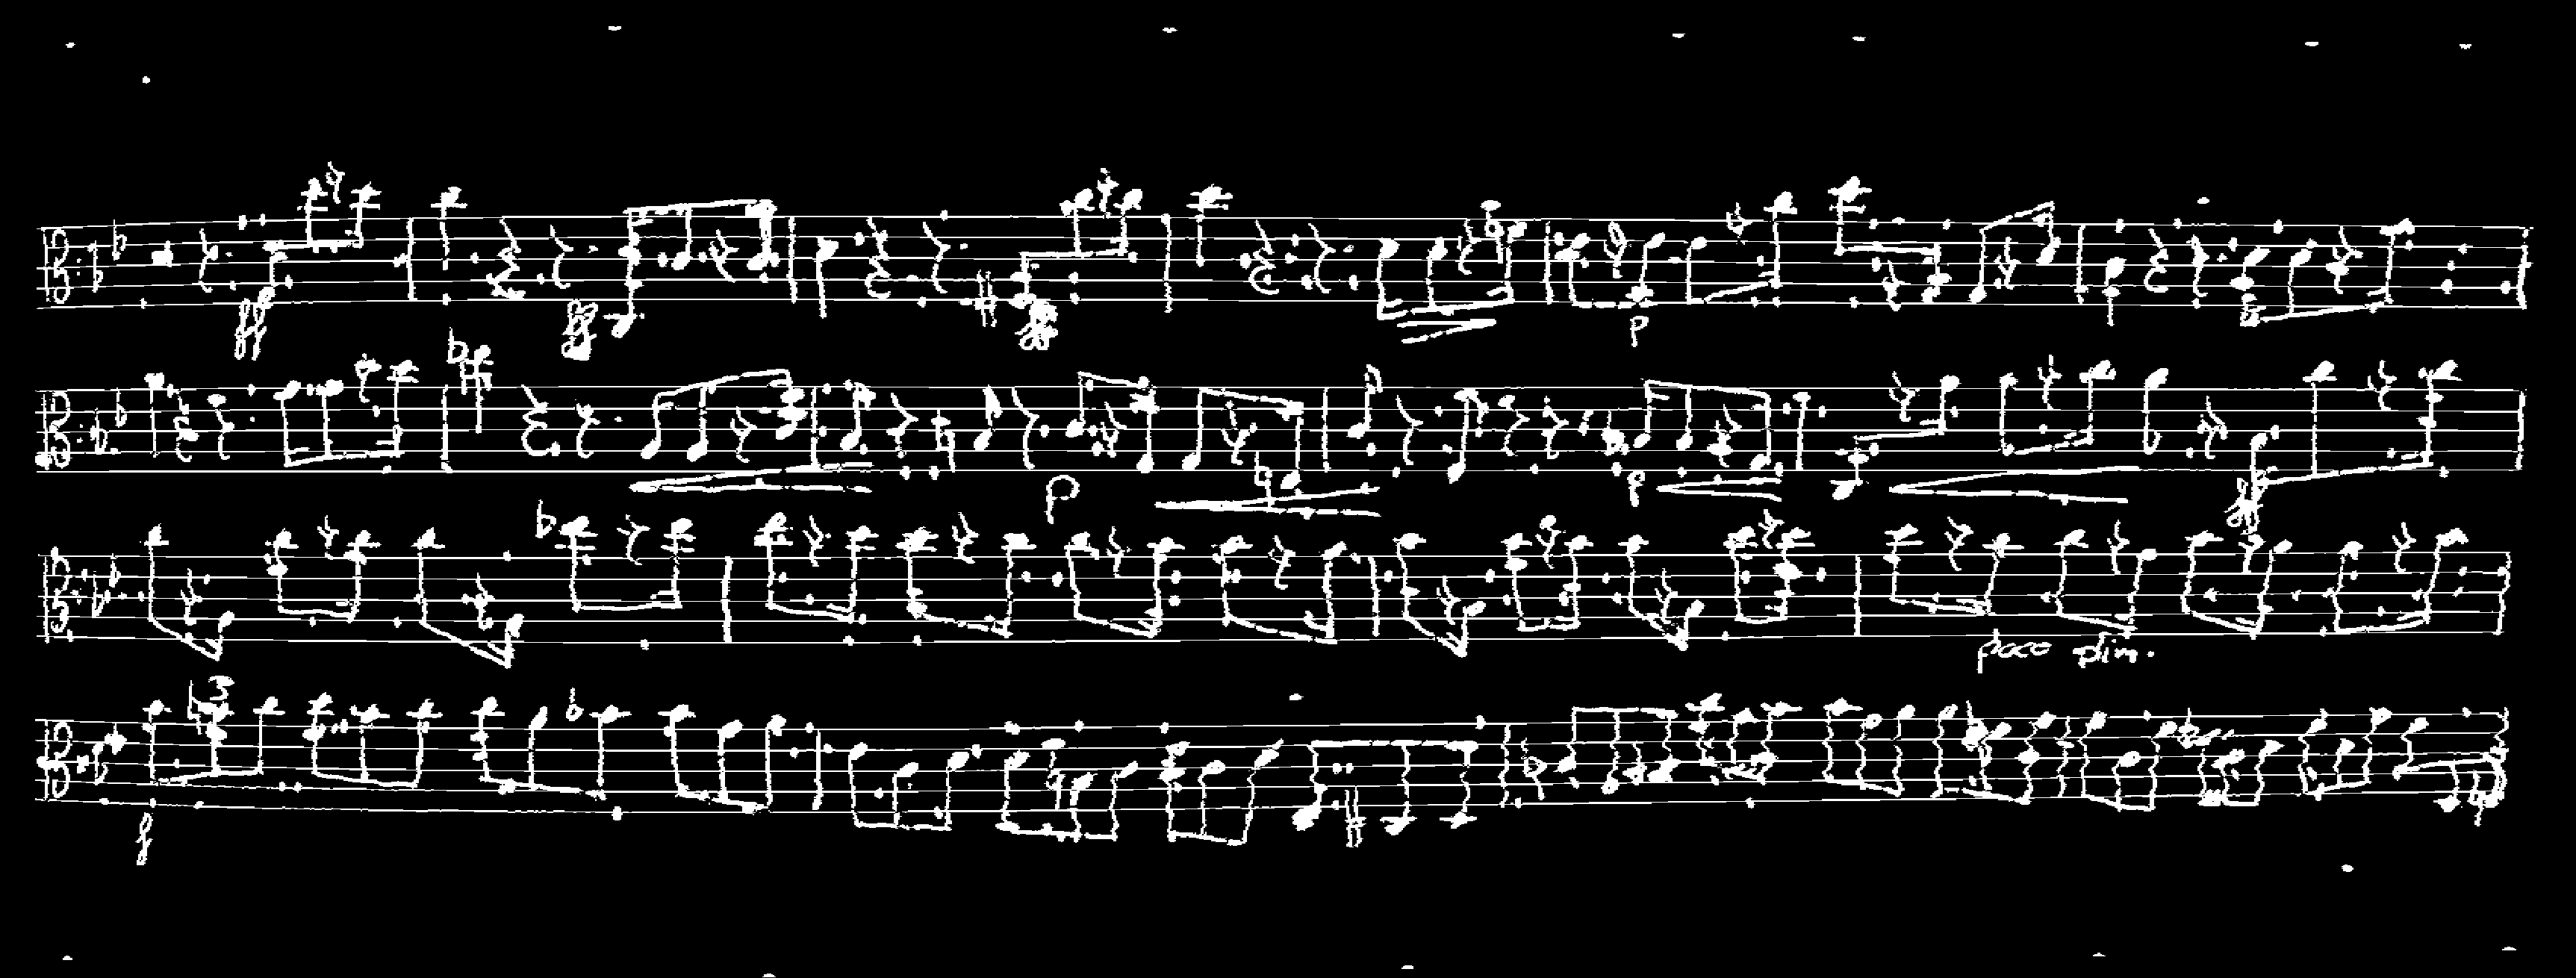 ff ff ff p
p p ff
poco dim.
3
f